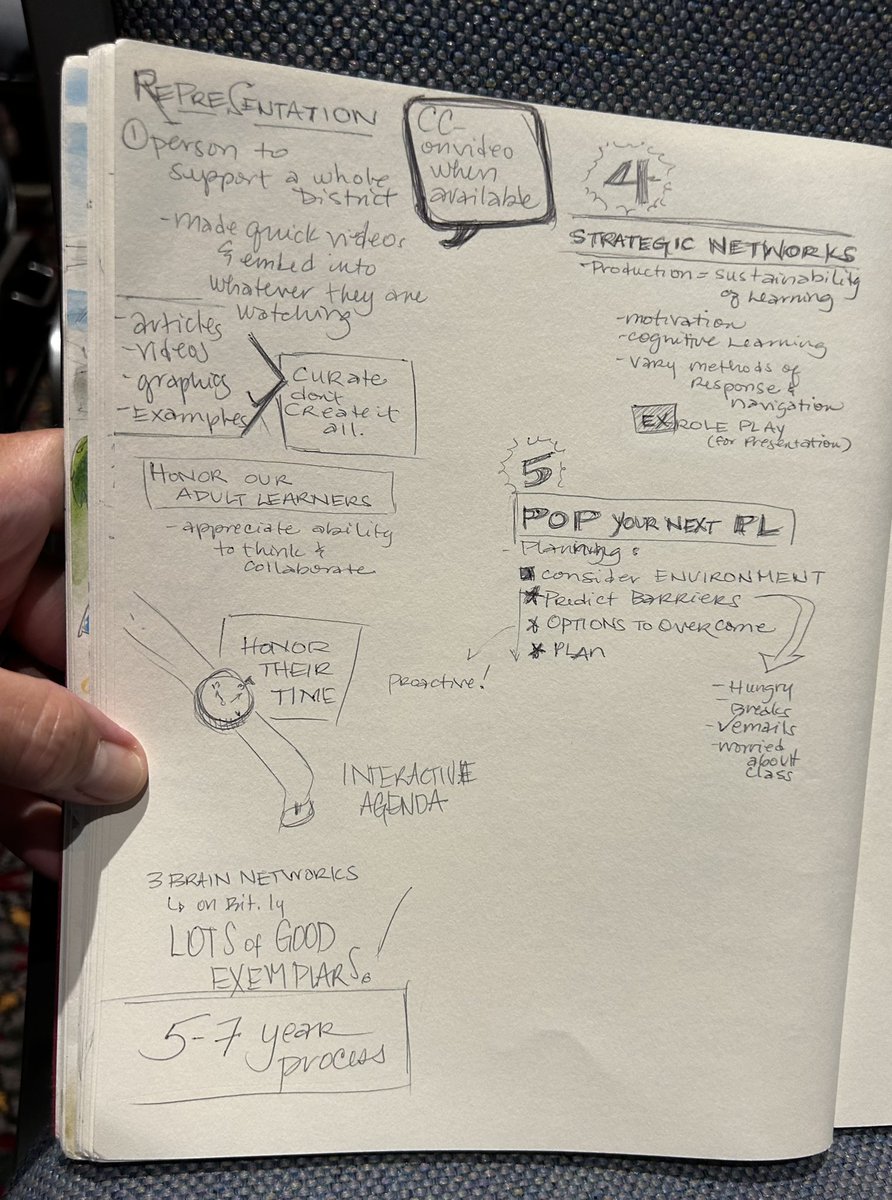 REPRESENTATION
① person to
support a whole
District
- made quick videos
& embed into
whatever they are
watching
- articles
- videos
- graphics
- Examples
CURATE
don't
create it
all.
CC-
on video
when
available
HONOR OUR
ADULT LEARNERS
- appreciate ability
to think &
collaborate
HONOR
THEIR
TIME
INTERACTIVE
AGENDA
3 BRAIN NETWORKS
↳ on Bit.ly
LOTS of GOOD
EXEMPLARS.
5-7 year
process
4
STRATEGIC NETWORKS
- Production = sustainability
of Learning
- motivation
- cognitive Learning
- Vary methods of
Response &
navigation
EX ROLE PLAY
(for Presentation)
5
POP YOUR NEXT PL
- Planning:
consider ENVIRONMENT
* Predict BARRIERS
* OPTIONS TO OVERCOME
* PLAN
proactive!
- Hungry
- Breaks
- emails
- worried
about
class